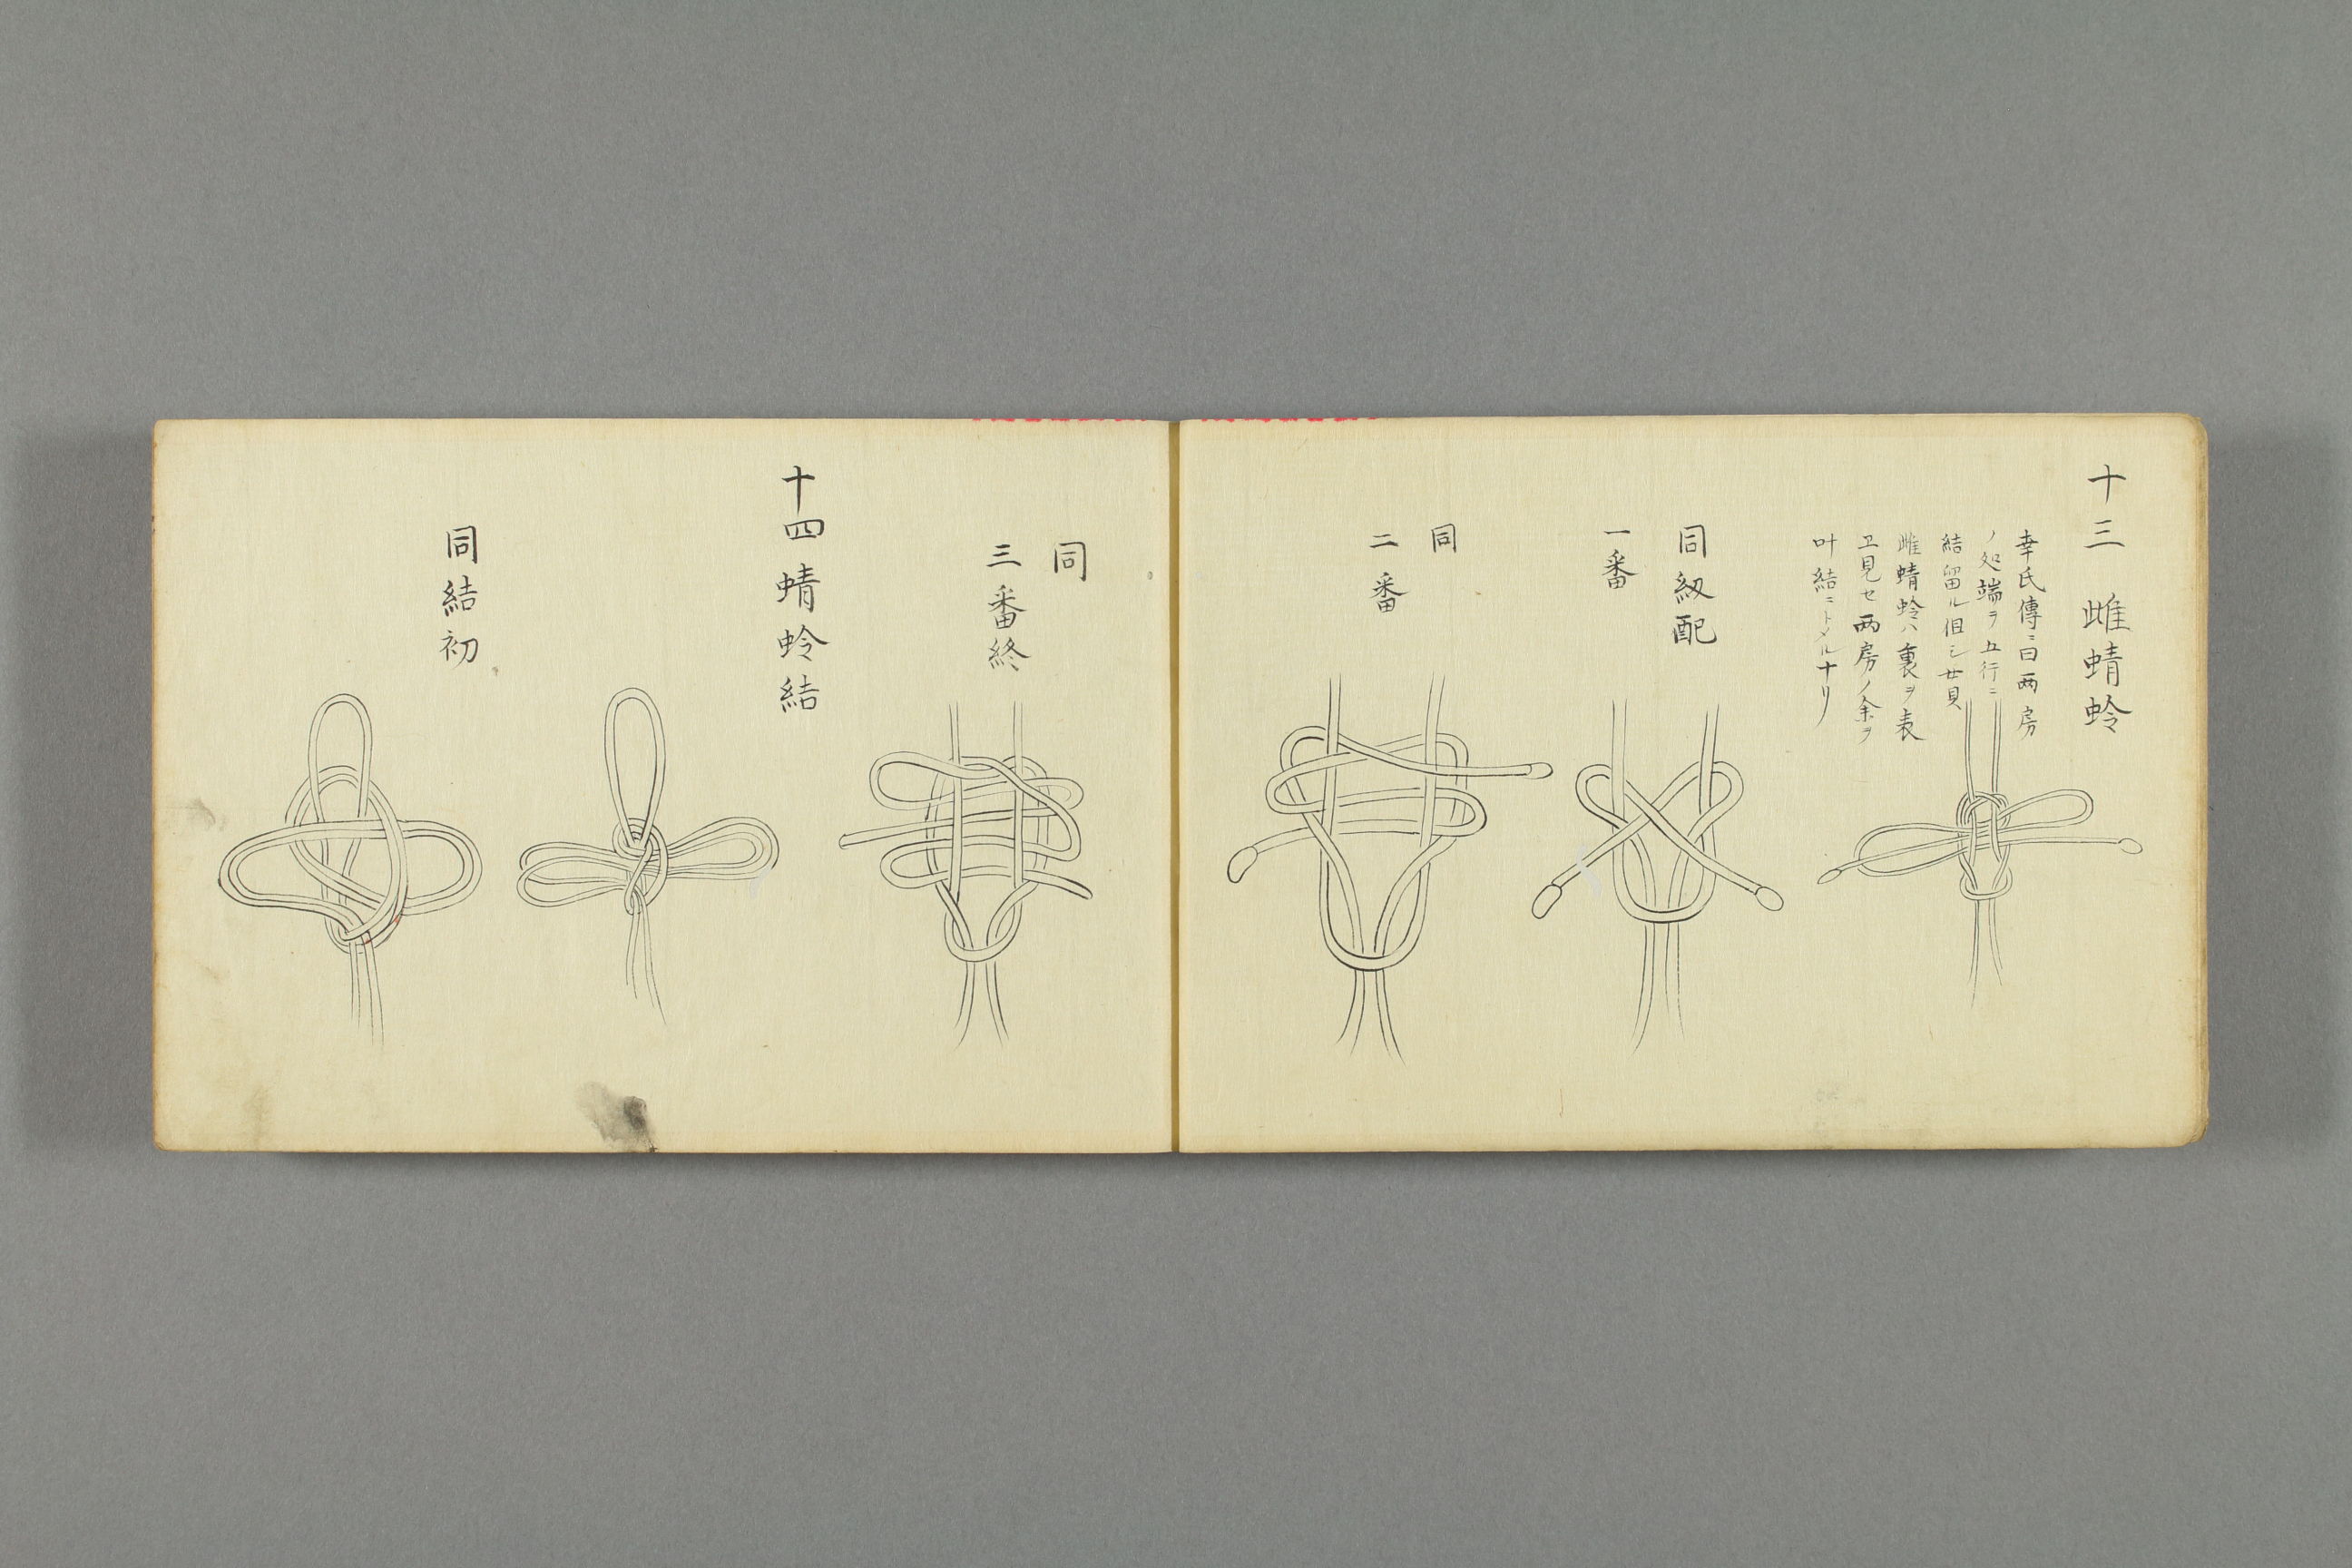 十三 雌蜻蛉
幸氏傳ニ曰両房
ノ処端ヲ五行ニ
結留ル但シ
雌蜻蛉ハ裏ヲ表
ヱ見セ両房ノ余ヲ
叶結ニトメルナリ
同紐配
一番
同
二番
同
三番終
十四 蜻蛉結
同結初